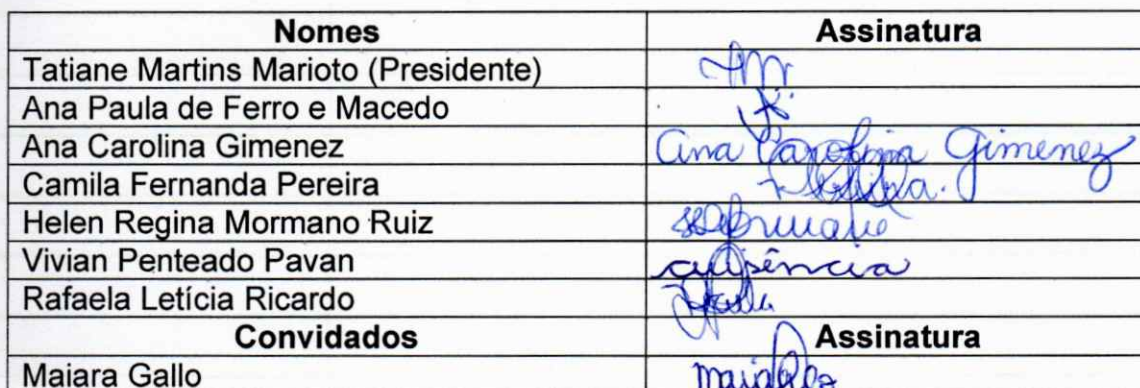 Nomes Assinatura
Tatiane Martins Marioto (Presidente)
Ana Paula de Ferro e Macedo
Ana Carolina Gimenez Ana Carolina Gimenez
Camila Fernanda Pereira
Helen Regina Mormano Ruiz
Vivian Penteado Pavan ausência
Rafaela Letícia Ricardo
Convidados Assinatura
Maiara Gallo